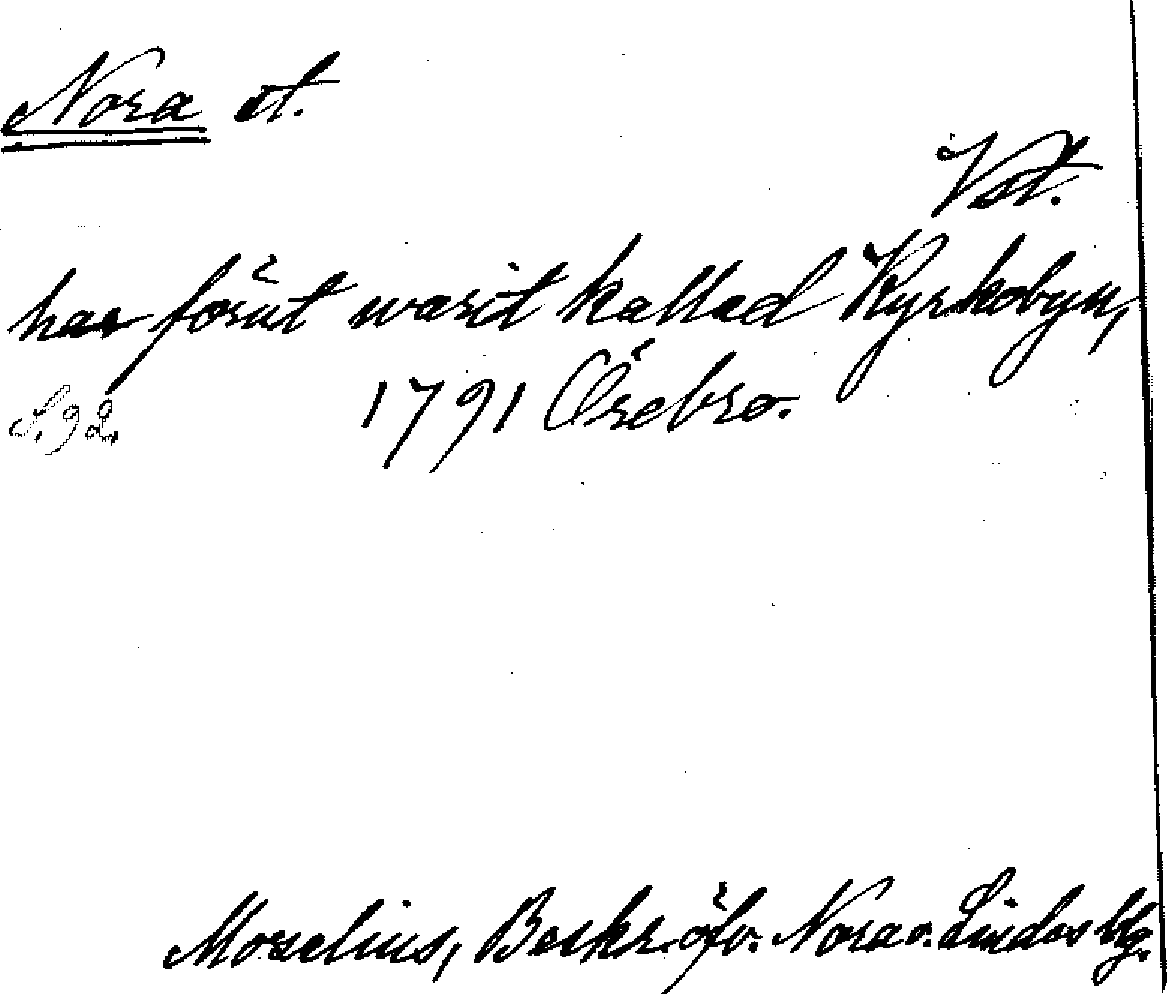 Nora st.
Vst.
har förut warit kallad Kyrkobyn,
S. 92. 1791 Örebro.
Morelius, Beskr. öfv. Nora o. Lindes blg.